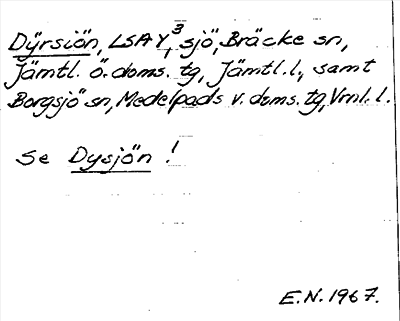 Dÿrsiön, LSAY³, sjö, Bräcke sn,
Jämtl. ö. doms. tg, Jämtl. l., samt
Borgsjö sn, Medelpads v. doms. tg, Vrnl. l.
se Dysjön !
E.N. 1967.